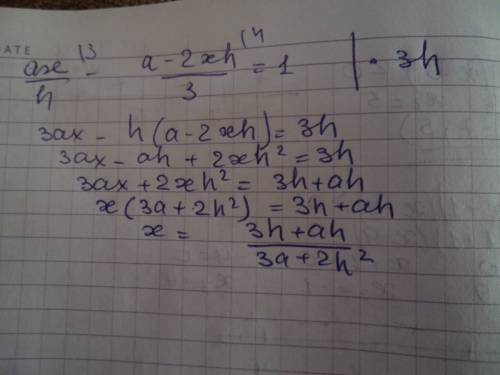 ATE
ax/h (3 - a-2xh/3 (h = 1 | · 3h
3ax - h(a-2xh) = 3h
3ax - ah + 2xh² = 3h
3ax + 2xh² = 3h+ah
x(3a+2h²) = 3h+ah
x = 3h+ah/3a+2h²